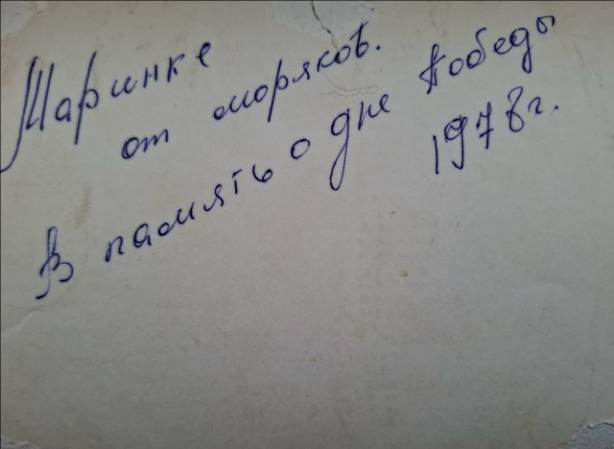 Маринке
от моряков.
В память о дне Победы
1978г.